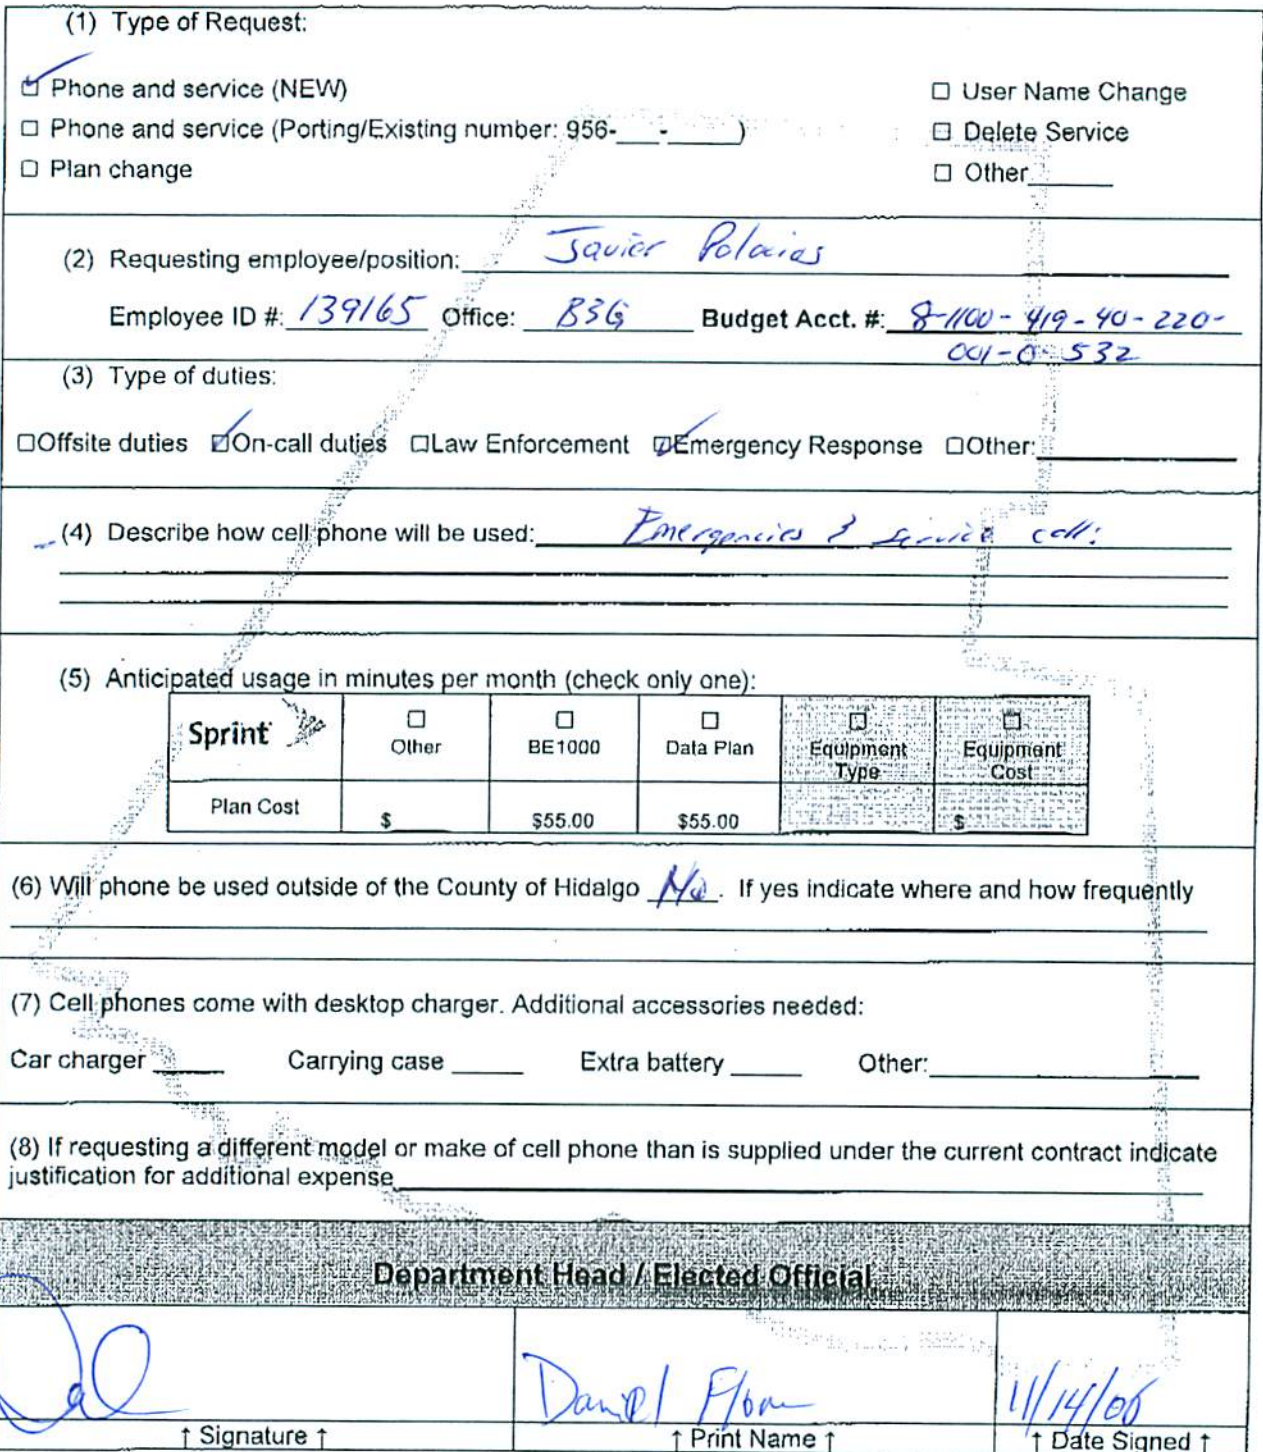 (1) Type of Request:
☑ Phone and service (NEW)
☐ User Name Change
☐ Phone and service (Porting/Existing number: 956-___-_____)
☐ Delete Service
☐ Plan change
☐ Other______
(2) Requesting employee/position: Javier Palacios
Employee ID #: 139165 Office: B&G Budget Acct. #: 8-1100-419-40-220-
001-0-532
(3) Type of duties:
☐Offsite duties ☑On-call duties ☐Law Enforcement ☑Emergency Response ☐Other:
(4) Describe how cell phone will be used: Emergencies & service calls
(5) Anticipated usage in minutes per month (check only one):
Sprint ☐ Other ☐ BE1000 ☐ Data Plan ☐ Equipment Type ☐ Equipment Cost
Plan Cost $____ $55.00 $55.00 $
(6) Will phone be used outside of the County of Hidalgo No. If yes indicate where and how frequently
(7) Cell phones come with desktop charger. Additional accessories needed:
Car charger _____ Carrying case _____ Extra battery _____ Other:
(8) If requesting a different model or make of cell phone than is supplied under the current contract indicate
justification for additional expense
Department Head / Elected Official
Daniel 11/14/06
↑ Signature ↑ ↑ Print Name ↑ ↑ Date Signed ↑